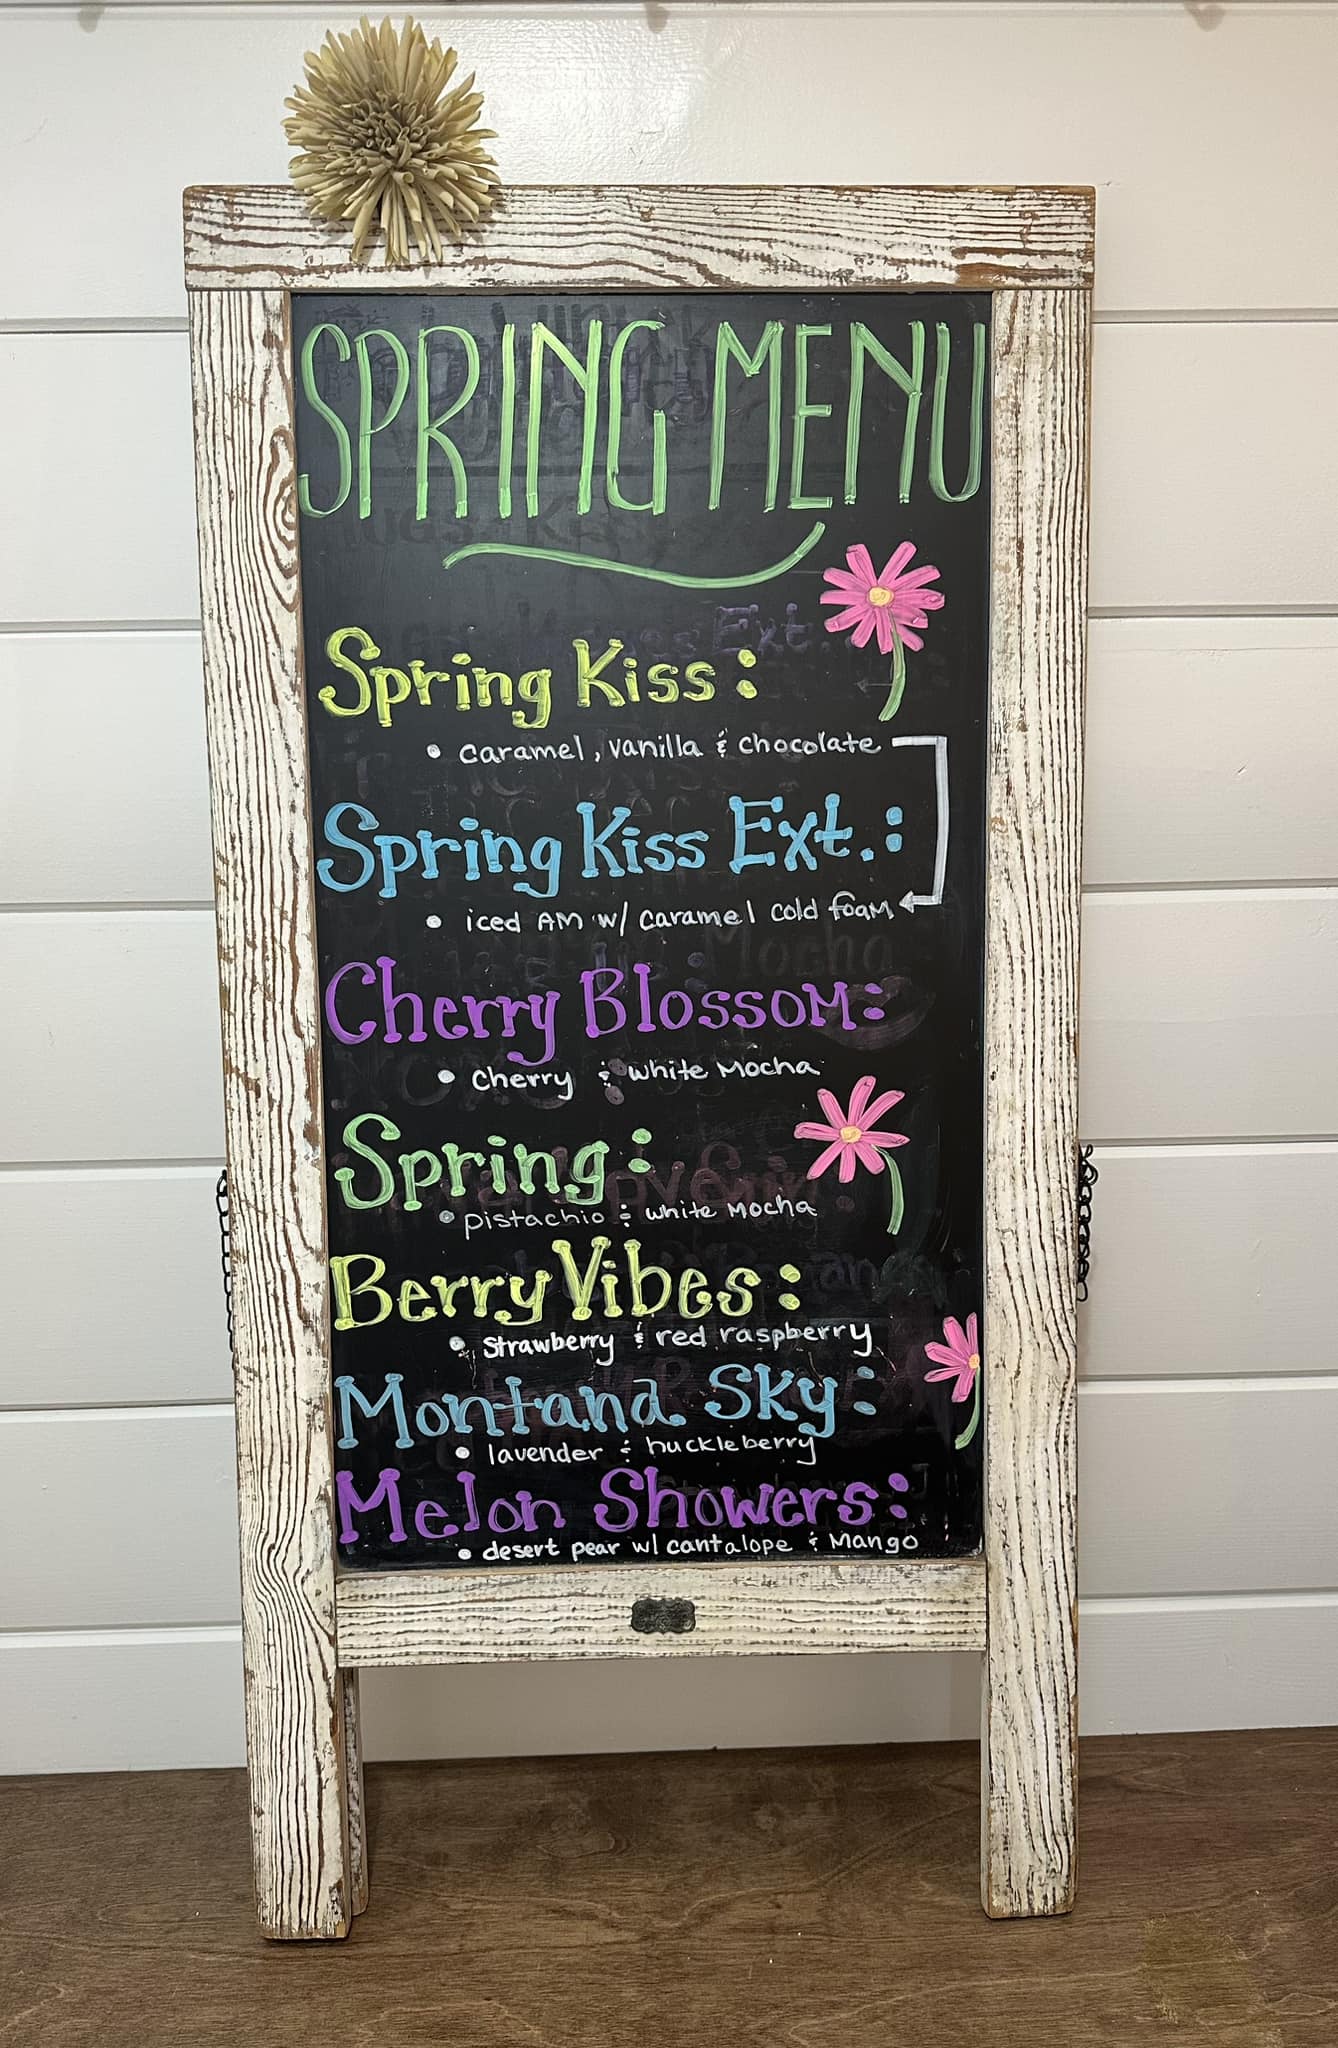 SPRING MENU
Spring Kiss:
• caramel, vanilla & chocolate
Spring Kiss Ext.:
• iced AM w/ caramel cold foam
Cherry Blossom:
• Cherry & white Mocha
Spring:
• pistachio & white Mocha
Berry Vibes:
• Strawberry & red raspberry
Montana Sky:
• lavender & huckleberry
Melon Showers:
• desert pear w/ cantalope & Mango